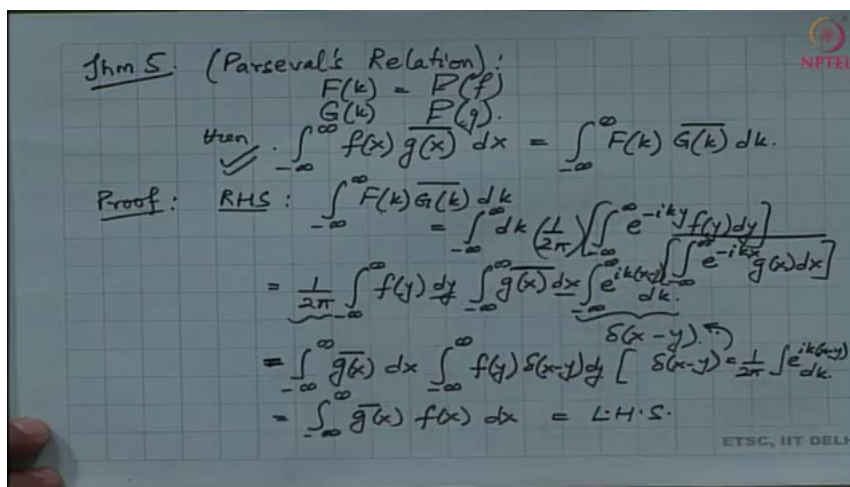 Thm 5. (Parseval's Relation):
F(k) = F(f)
G(k) F(g).
then. ∫_{-∞}^{∞} f(x) \overline{g(x)} dx = ∫_{-∞}^{∞} F(k) \overline{G(k)} dk.
Proof: RHS: ∫_{-∞}^{∞} F(k) \overline{G(k)} dk
= ∫_{-∞}^{∞} dk (1/2π) [∫_{-∞}^{∞} e^{-iky} f(y) dy]
\overline{[∫_{-∞}^{∞} e^{-ikx} g(x) dx]}
= 1/2π ∫_{-∞}^{∞} f(y) dy ∫_{-∞}^{∞} \overline{g(x)} dx ∫_{-∞}^{∞} e^{ik(x-y)} dk.
δ(x-y).
= ∫_{-∞}^{∞} \overline{g(x)} dx ∫_{-∞}^{∞} f(y) δ(x-y) dy [ δ(x-y) = 1/2π ∫ e^{ik(x-y)} dk.
= ∫_{-∞}^{∞} \overline{g}(x) f(x) dx = L.H.S.
NPTEL
ETSC, IIT DELH